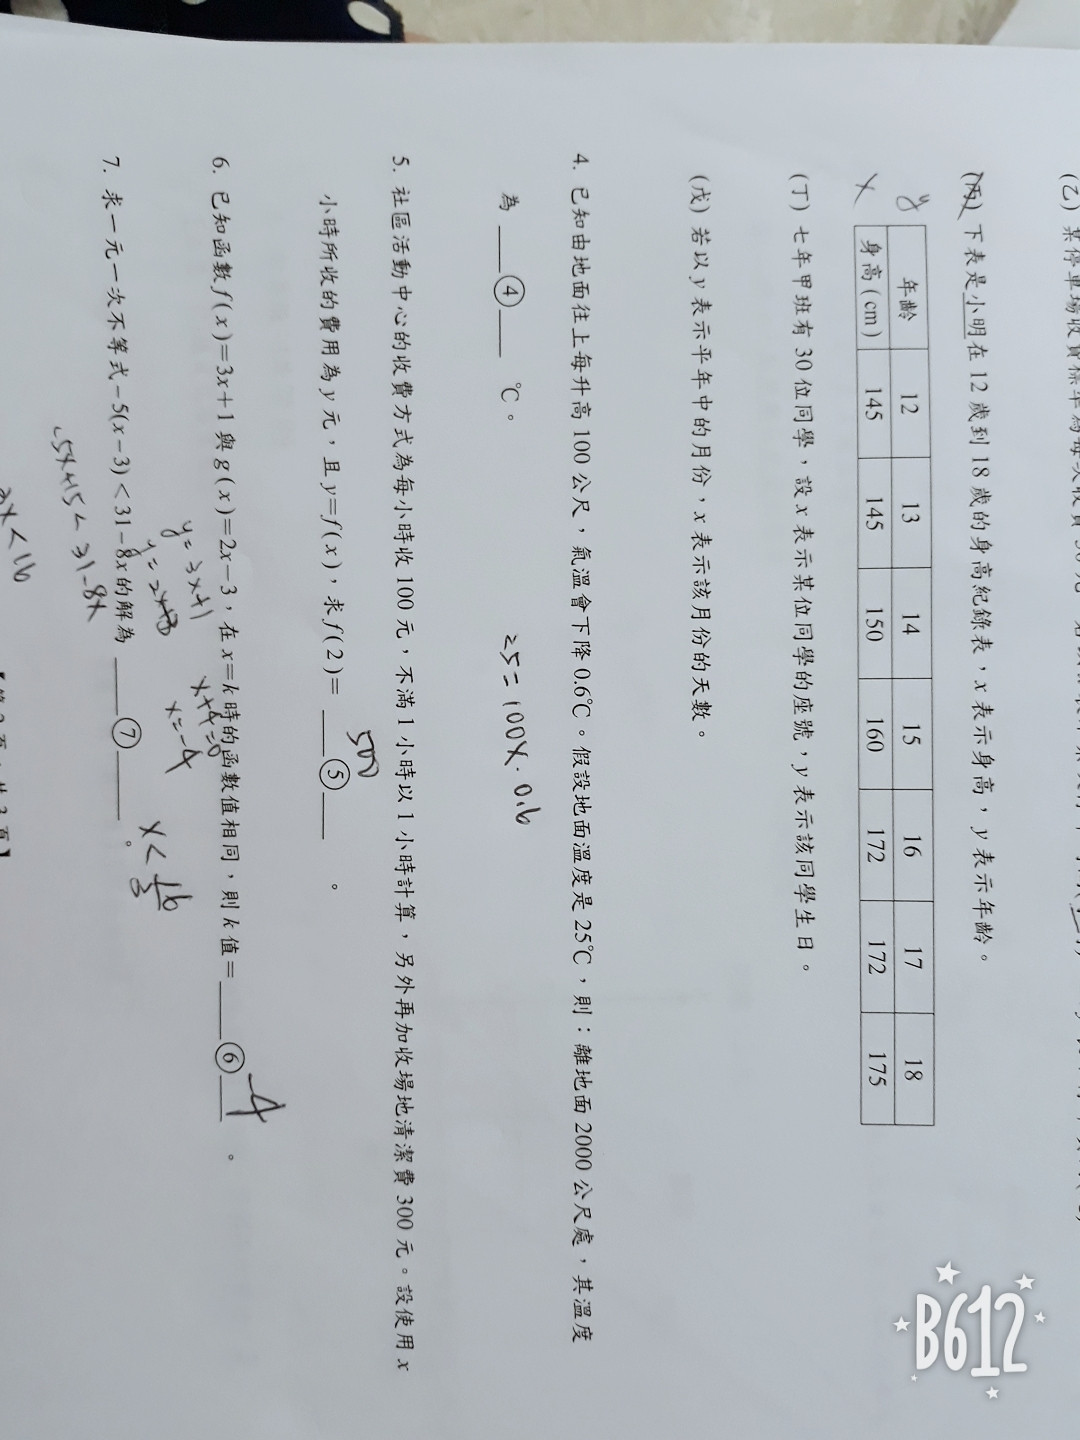 (丙) 下表是小明在 12 歲到 18 歲的身高紀錄表，x 表示身高，y 表示年齡。
y 年齡 12 13 14 15 16 17 18
x 身高(cm) 145 145 150 160 172 172 175
(丁) 七年甲班有 30 位同學，設 x 表示某位同學的座號，y 表示該同學生日。
(戊) 若以 y 表示平年中的月份，x 表示該月份的天數。
4. 已知由地面往上每升高 100 公尺，氣溫會下降 0.6℃。假設地面溫度是 25℃，則：離地面 2000 公尺處，其溫度
為 ④ ℃。
25=100x·0.6
5. 社區活動中心的收費方式為每小時收 100 元，不滿 1 小時以 1 小時計算，另外再加收場地清潔費 300 元。設使用 x
小時所收的費用為 y 元，且 y=f(x)，求 f(2)= ⑤ 。
500
6. 已知函數 f(x)=3x+1 與 g(x)=2x-3，在 x=k 時的函數值相同，則 k 值= ⑥ 。
-4
y=3x+1
x+4=0
x=-4
7. 求一元一次不等式 -5(x-3)<31-8x 的解為 ⑦ 。
x<16/3
-5x+15<31-8x
3x<16
B612